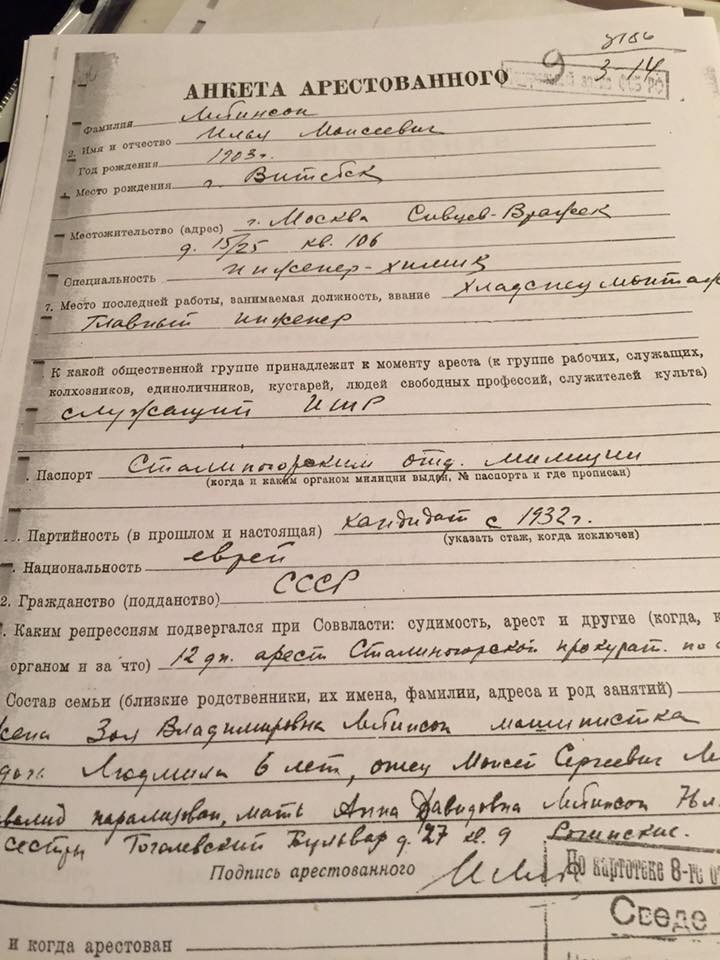 3186
9 3-14
АНКЕТА АРЕСТОВАННОГО
архив ФСБ РФ
Фамилия Левинсон
2. Имя и отчество Илья Моисеевич
Год рождения 1903 г.
Место рождения г. Витебск
Местожительство (адрес) г. Москва Сивцев-Вражек
д. 15/25 кв. 106
Специальность инженер-химик
7. Место последней работы, занимаемая должность, звание Хладспецмонтаж
Главный инженер
К какой общественной группе принадлежит к моменту ареста (к группе рабочих, служащих,
колхозников, единоличников, кустарей, людей свободных профессий, служителей культа)
служащий ИТР
. Паспорт Сталиногорским отд. милиции
(когда и каким органом милиции выдан, № паспорта и где прописан)
. Партийность (в прошлом и настоящая) кандидат с 1932 г.
(указать стаж, когда исключен)
. Национальность еврей
2. Гражданство (подданство) СССР
. Каким репрессиям подвергался при Соввласти: судимость, арест и другие (когда, к
органом и за что) 12 дн. арест Сталиногорской прокурат. по
Состав семьи (близкие родственники, их имена, фамилии, адреса и род занятий)
жена Зоя Владимировна Левинсон машинистка
дочь Людмила 6 лет, отец Моисей Сергеевич Ле
валид парализован, мать Анна Давидовна Левинсон
сестры Гоголевский Бульвар д. 27 кв. 9 Рогинские.
Подпись арестованного
По картотеке 8-го о
Сведе
и когда арестован